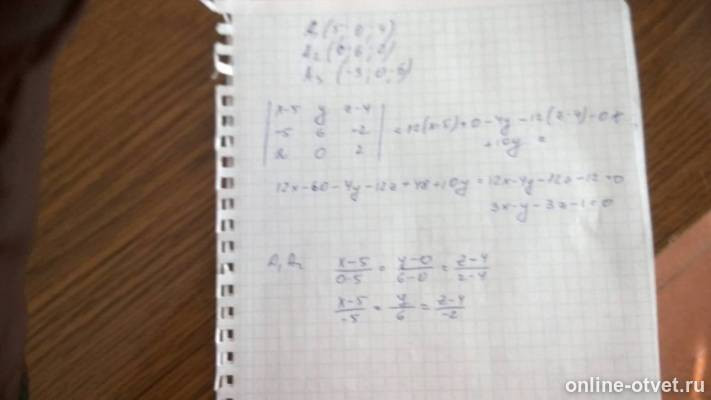 (5; 0; 4)
(0; 6; 2)
(-3; 0; 6)
| x-5 y z-4 |
| -5 6 -2 | = 12(x-5)+0-4y-12(z-4)-0+
| 2 0 2 | +10y =
12x-60-4y-12z+48+10y=12x-4y-12z-12=0
3x-y-3z-1=0
x-5/0-5 = y-0/6-0 = z-4/2-4
x-5/-5 = y/6 = z-4/-2
online-otvet.ru